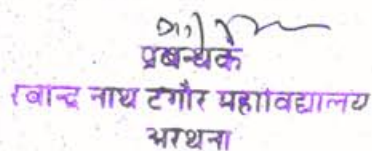 प्रबन्धक
रवीन्द्र नाथ टैगोर महाविद्यालय
भरथना